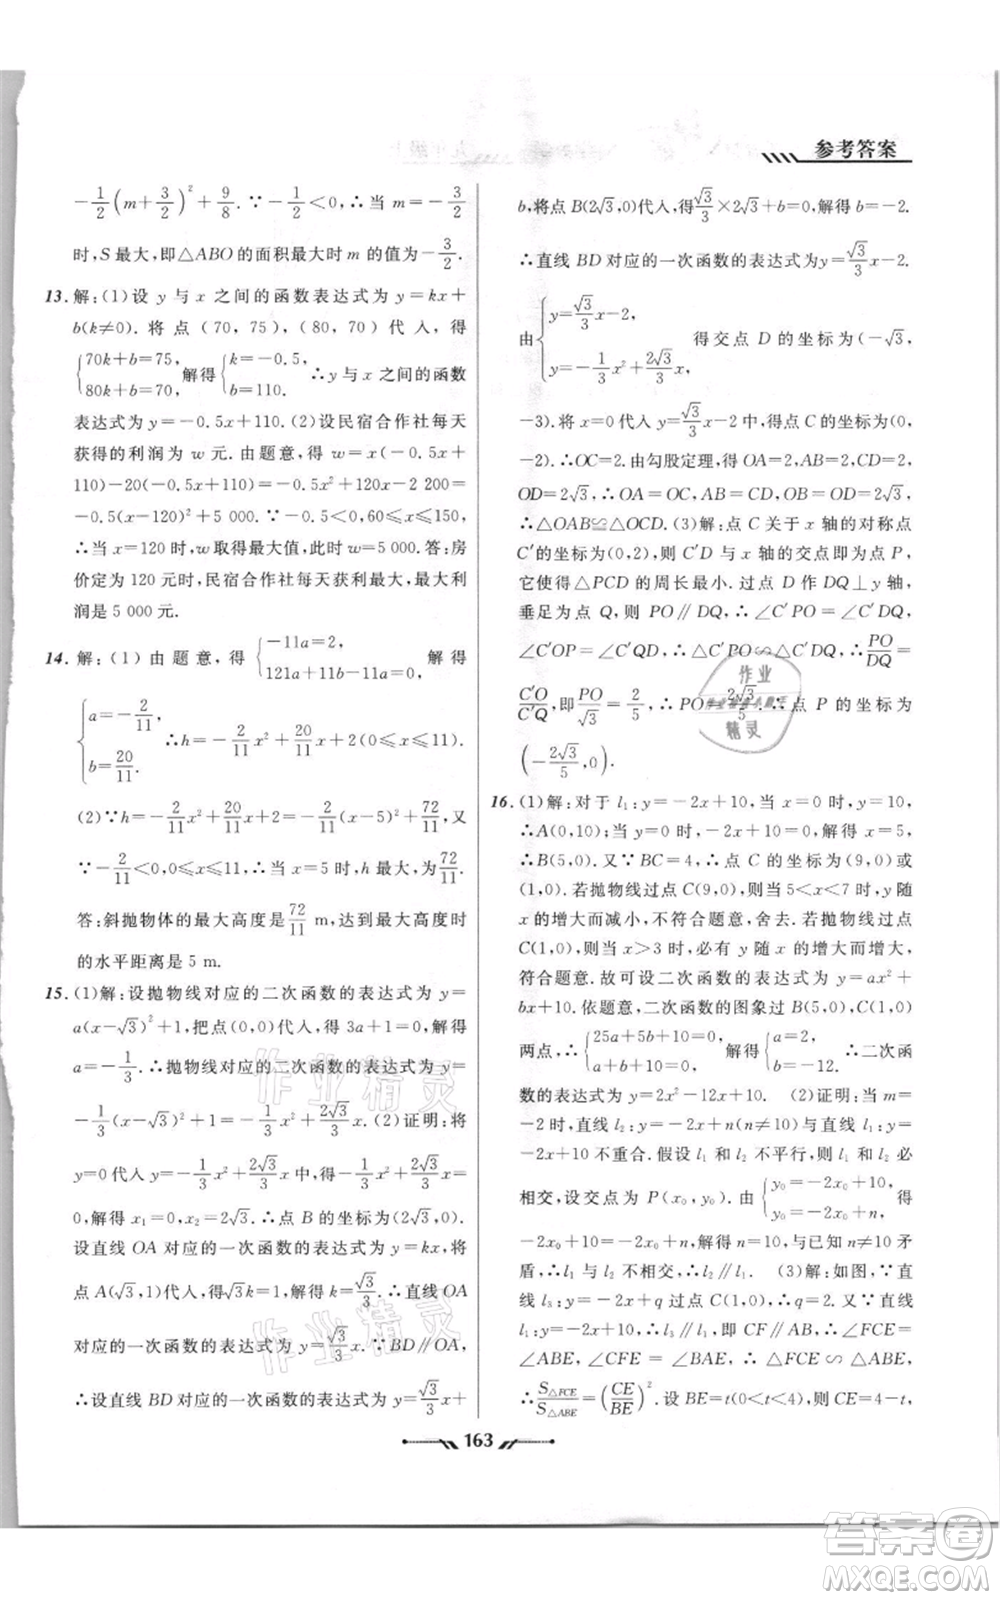 参考答案
-1/2(m+3/2)²+9/8. ∵-1/2<0,∴当 m=-3/2
时,S最大,即△ABO的面积最大时 m 的值为-3/2.
13. 解:(1)设 y 与 x 之间的函数表达式为 y=kx+
b(k≠0). 将点(70, 75),(80, 70)代入,得
{70k+b=75, 80k+b=70, 解得{k=-0.5, b=110. ∴y与x之间的函数
表达式为 y=-0.5x+110. (2)设民宿合作社每天
获得的利润为 w 元. 由题意,得 w=x(-0.5x+
110)-20(-0.5x+110)=-0.5x²+120x-2 200
=-0.5(x-120)²+5 000. ∵-0.5<0,60≤x≤150,
∴当 x=120 时,w取得最大值,此时 w=5 000. 答:房
价定为 120 元时,民宿合作社每天获利最大,最大利
润是 5 000 元.
14. 解:(1)由题意,得{-11a=2, 121a+11b-11a=20, 解得
{a=-2/11, b=20/11. ∴h=-2/11x²+20/11x+2(0≤x≤11).
(2)∵h=-2/11x²+20/11x+2=-2/11(x-5)²+72/11,又
∵-2/11<0,0≤x≤11,∴当 x=5 时,h最大,为72/11.
答:斜抛物体的最大高度是72/11 m,达到最大高度时
的水平距离是 5 m.
15. (1)解:设抛物线对应的二次函数的表达式为 y=
a(x-√3)²+1,把点(0,0)代入,得 3a+1=0,解得
a=-1/3. ∴抛物线对应的二次函数的表达式为 y=
-1/3(x-√3)²+1=-1/3x²+2√3/3x. (2)证明:将
y=0代入 y=-1/3x²+2√3/3x 中,得-1/3x²+2√3/3x=
0,解得 x₁=0,x₂=2√3. ∴点 B 的坐标为(2√3,0).
设直线OA对应的一次函数的表达式为 y=kx,将
点A(√3,1)代入,得√3k=1,解得 k=√3/3. ∴直线OA
对应的一次函数的表达式为 y=√3/3x. ∵BD∥OA,
∴设直线BD对应的一次函数的表达式为 y=√3/3x+
b,将点B(2√3,0)代入,得√3/3×2√3+b=0,解得 b=-2.
∴直线 BD 对应的一次函数的表达式为y=√3/3x-2.
由{y=√3/3x-2, y=-1/3x²+2√3/3x 得交点 D 的坐标为(-√3,
-3).将 x=0代入 y=√3/3x-2 中,得点 C 的坐标为(0,
-2).∴OC=2. 由勾股定理,得 OA=2,AB=2,CD=2,
OD=2√3. ∴OA=OC,AB=CD,OB=OD,
∴△OAB≌△OCD. (3)解:点 C 关于 x 轴的对称点
C′的坐标为(0,2),则 C′D 与 x 轴的交点即为点 P,
它使得△PCD 的周长最小. 过点 D 作 DQ⊥y 轴,
垂足为点 Q,则 PO∥DQ,∴∠C′PO=∠C′DQ,
∠C′OP=∠C′QD,∴△C′PO∽△C′DQ,∴PO/DQ=
C′O/C′Q,即PO/√3=2/5,∴PO=2√3/5. ∴点 P 的坐标为
(-2√3/5,0).
16. (1)解:对于 l₁:y=-2x+10,当 x=0 时,y=10,
∴A(0,10);当 y=0 时,-2x+10=0,解得 x=5,
∴B(5,0). 又∵BC=4,∴点 C 的坐标为(9,0)或
(1,0).若抛物线过点 C(9,0),则当 5<x<7 时,y 随
x 的增大而减小,不符合题意,舍去. 若抛物线过点
C(1,0),则当 x>3 时,必有 y 随 x 的增大而增大,
符合题意. 故可设二次函数的表达式为 y=ax²+
bx+10. 依题意,二次函数的图象过 B(5,0),C(1,0)
两点,∴{25a+5b+10=0, a+b+10=0, 解得{a=2, b=-12. ∴二次函
数的表达式为 y=2x²-12x+10. (2)证明:当 m=
-2时,直线 l₂:y=-2x+n(n≠10)与直线 l₁:y=
-2x+10 不重合. 假设 l₁ 和 l₂ 不平行,则 l₁ 和 l₂ 必
相交,设交点为 P(x₀,y₀). 由{y₀=-2x₀+10, y₀=-2x₀+n, 得
-2x₀+10=-2x₀+n,解得 n=10,与已知 n≠10 矛
盾,∴l₁ 与 l₂ 不相交,∴l₂∥l₁. (3)解:如图,∵直
线 l₃:y=-2x+q 过点 C(1,0),∴q=2. 又∵直线 l₃:
y=-2x+2与 l₁ 平行,即 CF∥AB,∴∠FCE=
∠ABE,∠CFE=∠BAE,∴△FCE∽△ABE,
∴S△FCE/S△ABE=(CE/BE)². 设 BE=t(0<t<4),则 CE=4-t,
163
作业
精灵
作业精灵
作业精灵
答案圈
MXQE.COM